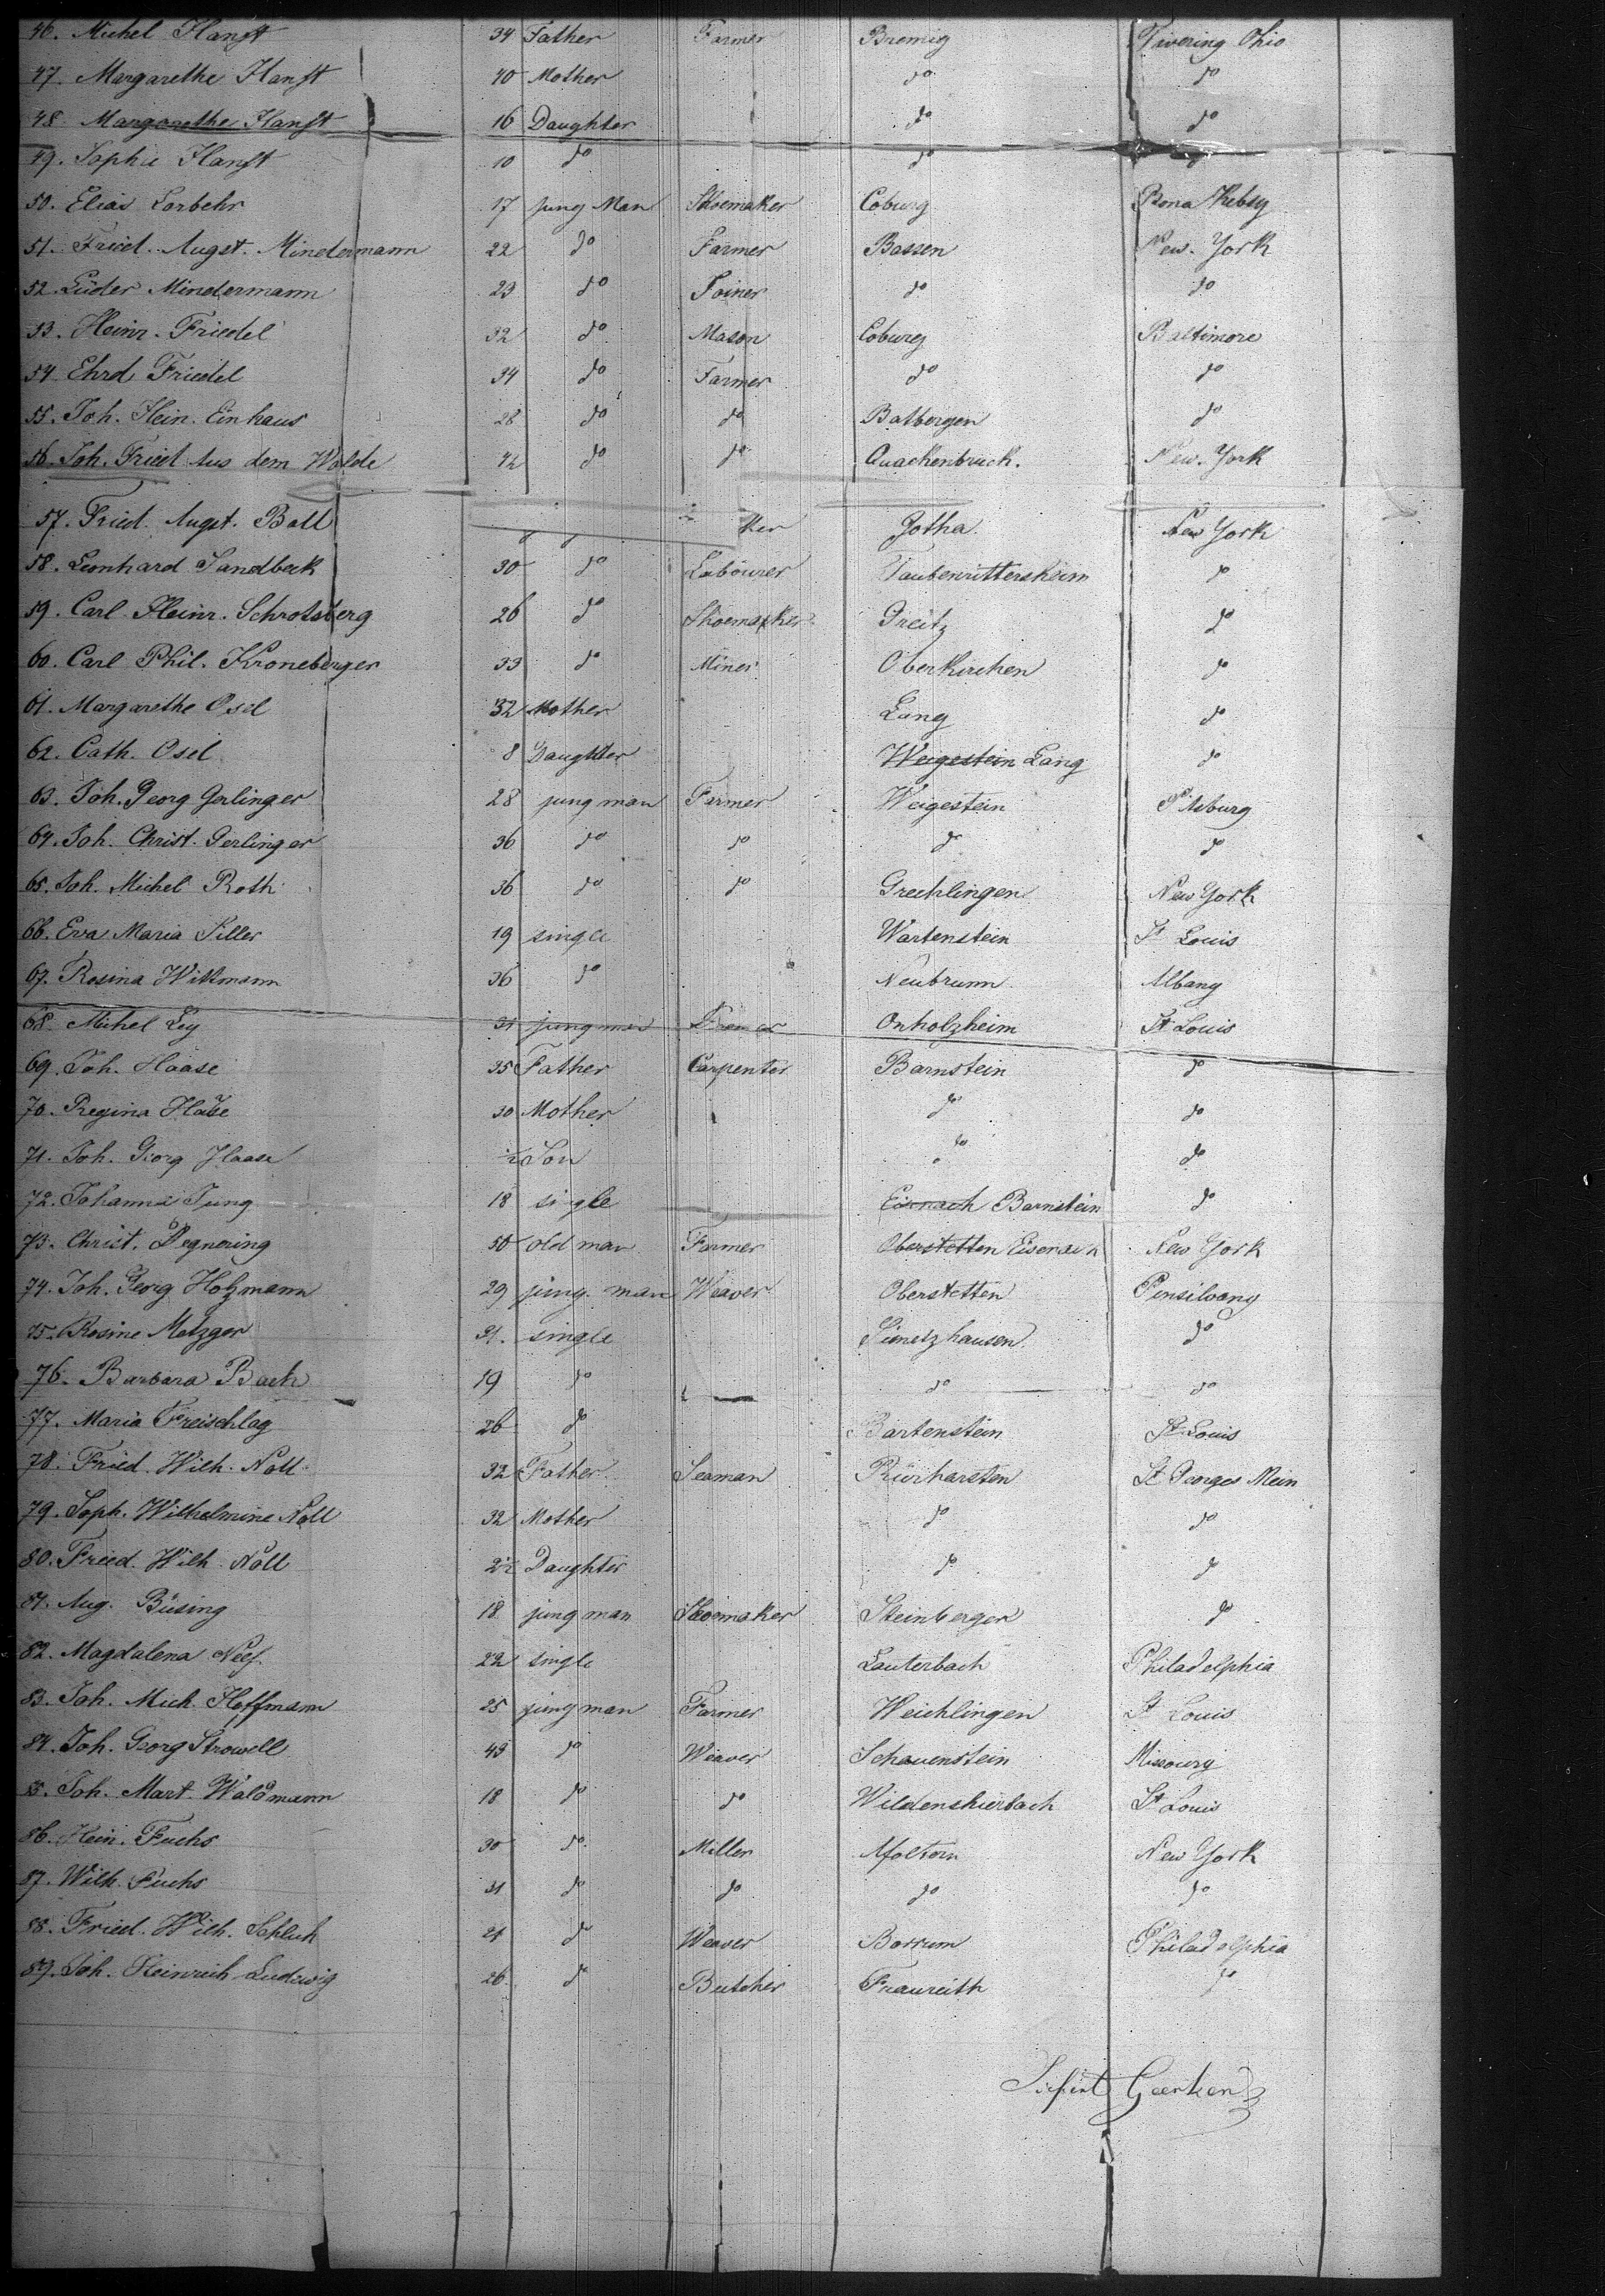 46. Michel Hanft 34 Father Farmer Bremig Ohio
47. Margarethe Hanft 40 Mother do do
48. Margarethe Hanft 16 Daughter do do
49. Sophie Hanft 10 do do
50. Elias Lorbehr 17 jung Man Shoemaker Coburg
51. Fried. Augst. Mindermann 22 do Farmer Bassen New-York
52. Lüder Mindermann 23 do Joiner do do
53. Heinr. Friedel 32 do Mason Coburg Baltimore
54. Ehrd Friedel 34 do Farmer do do
55. Joh. Hein. Einhaus 28 do do Batbergen do
56. Joh. Fried Aus dem Walde 42 do do Quackenbruck. New-York
57. Fried. Augst. Boll Gotha. New York
58. Leonhard Sandbeck 30 do Labourer Taubenrittersheim do
59. Carl Heinr. Schrotsberg 26 do Shoemaker Greitz do
60. Carl Phil. Kroneberger 33 do Miner Oberkirchen do
61. Margarethe Osel 32 Mother Lang do
62. Cath. Osel 8 Daughter Weigestein Lang do
63. Joh. Georg Gerlinger 28 jung man Farmer Weigestein Pitsburg
64. Joh. Christ. Gerlinger 36 do do do do
65. Joh. Michel Roth 36 do do Grechlingen New York
66. Eva Maria Siller 19 single Wartenstein St Louis
67. Rosina Wittmann 36 do Neubrunn Albany
68. Michel Ley 31 jung man Onholzheim St Louis
69. Joh. Haase 35 Father Carpenter Barnstein do
70. Regina Haase 30 Mother do do
71. Joh. Georg Haase ½ Son do do
72. Johanna Jung 18 single Eisenach Barnstein do
73. Christ. Degnering 50 old man Farmer Oberstetten Eisenach New York
74. Joh. Georg Holzmann 29 jung man Weaver Oberstetten Pensilvany
75. Rosine Metzger 21. single do
76. Barbara Bach 19 do do do
77. Maria Freischlag 26 do Bartenstein St Louis
78. Fried. Wilh. Noll 32 Father Seaman St Georges Mein
79. Soph. Wilhelmine Noll 32 Mother do do
80. Fried. Wilh. Noll 2½ Daughter do do
81. Aug. Büsing 18 jung man Shoemaker Steinbergen do
82. Magdalena Neef 22 single Lauterbach Philadelphia
83. Joh. Mich. Hoffmann 25 jung man Farmer Weichlingen St Louis
84. Joh. Georg Strowell 43 do Weaver Schauenstein Missoury
85. Joh. Mart. Waldmann 18 do do Wildenthierbach St Louis
86. Hein. Fuchs 30 do Miller New York
87. Wilh. Fuchs 31 do do do do
88. Fried. Wilh. Schluh 21 do Weaver Borrum Philadelphia
89. Joh. Heinrich Ludwig 26 do Butcher Fraureith do
Geerken